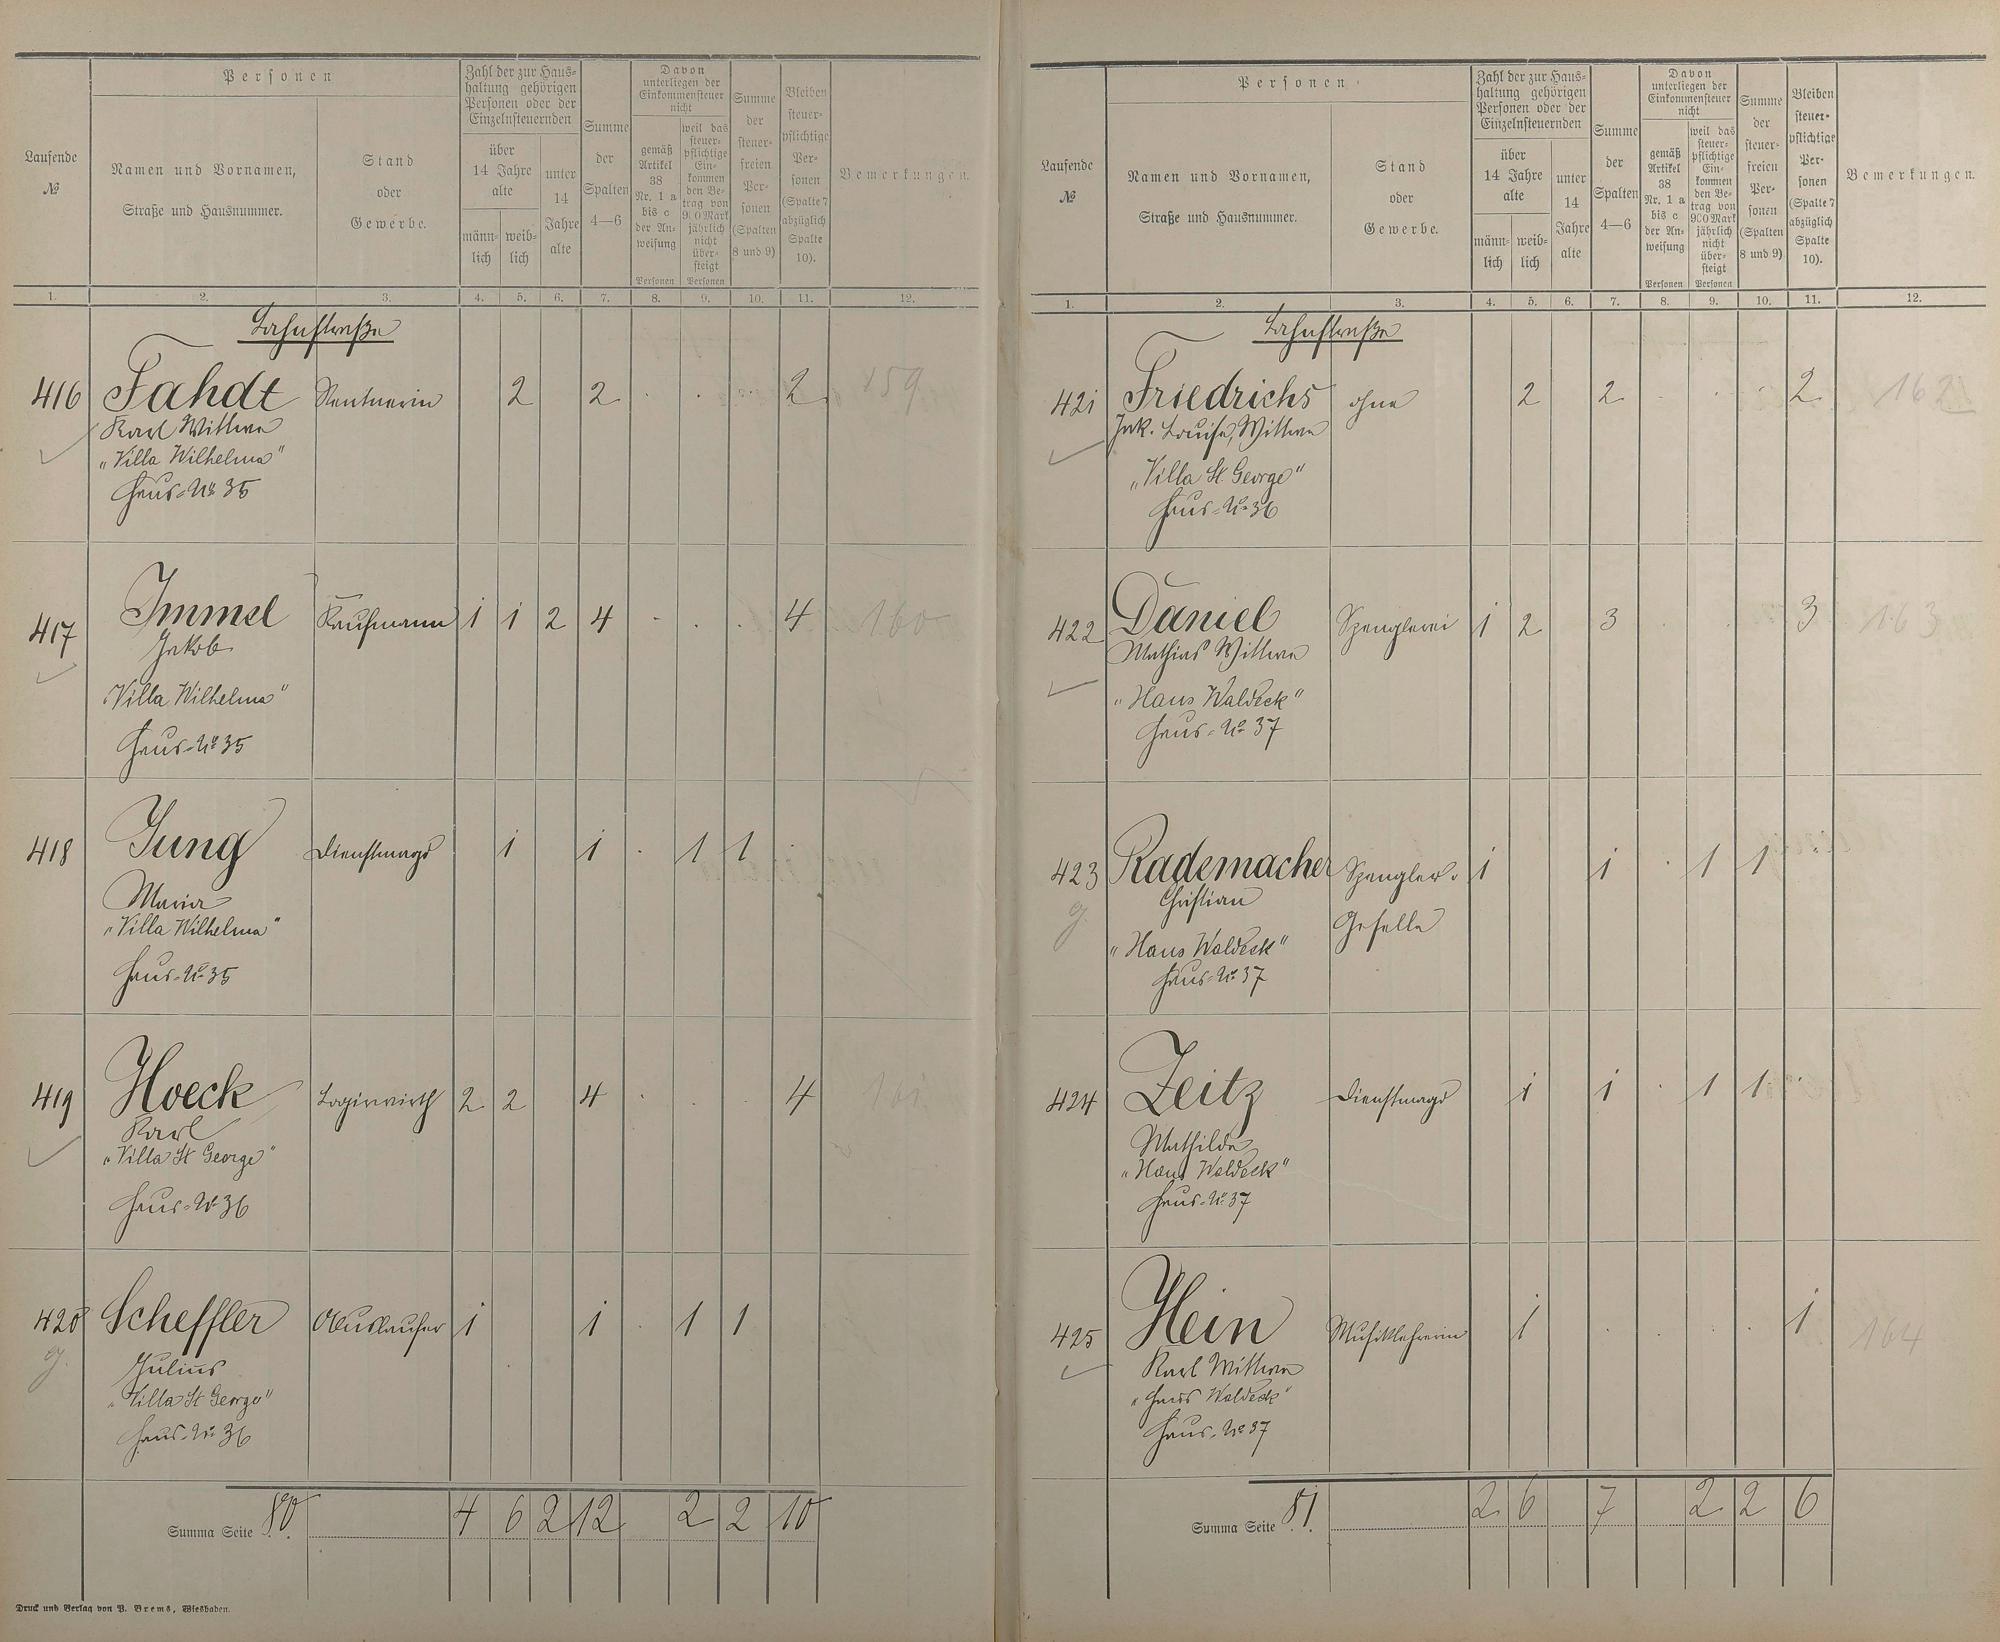 Laufende
№
Personen
Namen und Vornamen,
Straße und Hausnummer.
Stand
oder
Gewerbe.
Zahl der zur Haus-
haltung gehörigen
Personen oder der
Einzelnsteuernden
über
14 Jahre
alte
männ-
lich
weib-
lich
unter
14
Jahre
alte
Summe
der
Spalten
4—6
Davon
unterliegen der
Einkommensteuer
nicht
gemäß
Artikel
38
Nr. 1 a
bis c
der An-
weisung
Personen
weil das
steuer-
pflichtige
Ein-
kommen
den Be-
trag von
900 Mark
jährlich
nicht
über-
steigt
Personen
Summe
der
steuer-
freien
Per-
sonen
(Spalten
8 und 9)
Bleiben
steuer-
pflichtige
Per-
sonen
(Spalte 7
abzüglich
Spalte
10).
Bemerkungen.
1. 2. 3. 4. 5. 6. 7. 8. 9. 10. 11. 12.
Lahnstraße
416 Fahdt Rentnerin 2 2 . . . 2 159
Karl Wittwe
"Villa Wilhelma"
Haus-No 35
417 Immel Kaufmann 1 1 2 4 . . . 4 160
Jakob
"Villa Wilhelma"
Haus-No 35
418 Jung Dienstmagd 1 1 . 1 1 .
Maria
"Villa Wilhelma"
Haus-No 35
419 Hoeck Logirwirth 2 2 4 . . . 4 161
Karl
"Villa St George"
Haus-No 36
420 Scheffler Ausläufer 1 1 . 1 1
g.
Julius
"Villa St George"
Haus-No 36
Summa Seite 80. 4 6 2 12 2 2 10
Druck und Verlag von P. Brems, Wiesbaden.
Laufende
№
Personen
Namen und Vornamen,
Straße und Hausnummer.
Stand
oder
Gewerbe.
Zahl der zur Haus-
haltung gehörigen
Personen oder der
Einzelnsteuernden
über
14 Jahre
alte
männ-
lich
weib-
lich
unter
14
Jahre
alte
Summe
der
Spalten
4—6
Davon
unterliegen der
Einkommensteuer
nicht
gemäß
Artikel
38
Nr. 1 a
bis c
der An-
weisung
Personen
weil das
steuer-
pflichtige
Ein-
kommen
den Be-
trag von
900 Mark
jährlich
nicht
über-
steigt
Personen
Summe
der
steuer-
freien
Per-
sonen
(Spalten
8 und 9)
Bleiben
steuer-
pflichtige
Per-
sonen
(Spalte 7
abzüglich
Spalte
10).
Bemerkungen.
1. 2. 3. 4. 5. 6. 7. 8. 9. 10. 11. 12.
Lahnstraße
421 Friedrichs ohne 2 2 . . . 2 162
Jak. Louise, Wittwe
"Villa St. George"
Haus-No 36
422 Daniel Spenglerei 1 2 3 . . . 3 163
Mathias Wittwe
"Haus Waldeck"
Haus-No 37
423 Rademacher Spengler- 1 1 . 1 1
g.
Christian Geselle
"Haus Waldeck"
Haus-No 37
424 Zeitz Dienstmagd 1 1 . 1 1 .
Mathilde
"Haus Waldeck"
Haus-No 37
425 Hein Musiklehrerin 1 . . . . 1 164
Karl Wittwe
"Haus Waldeck"
Haus-No 37
Summa Seite 81. 2 6 7 2 2 6